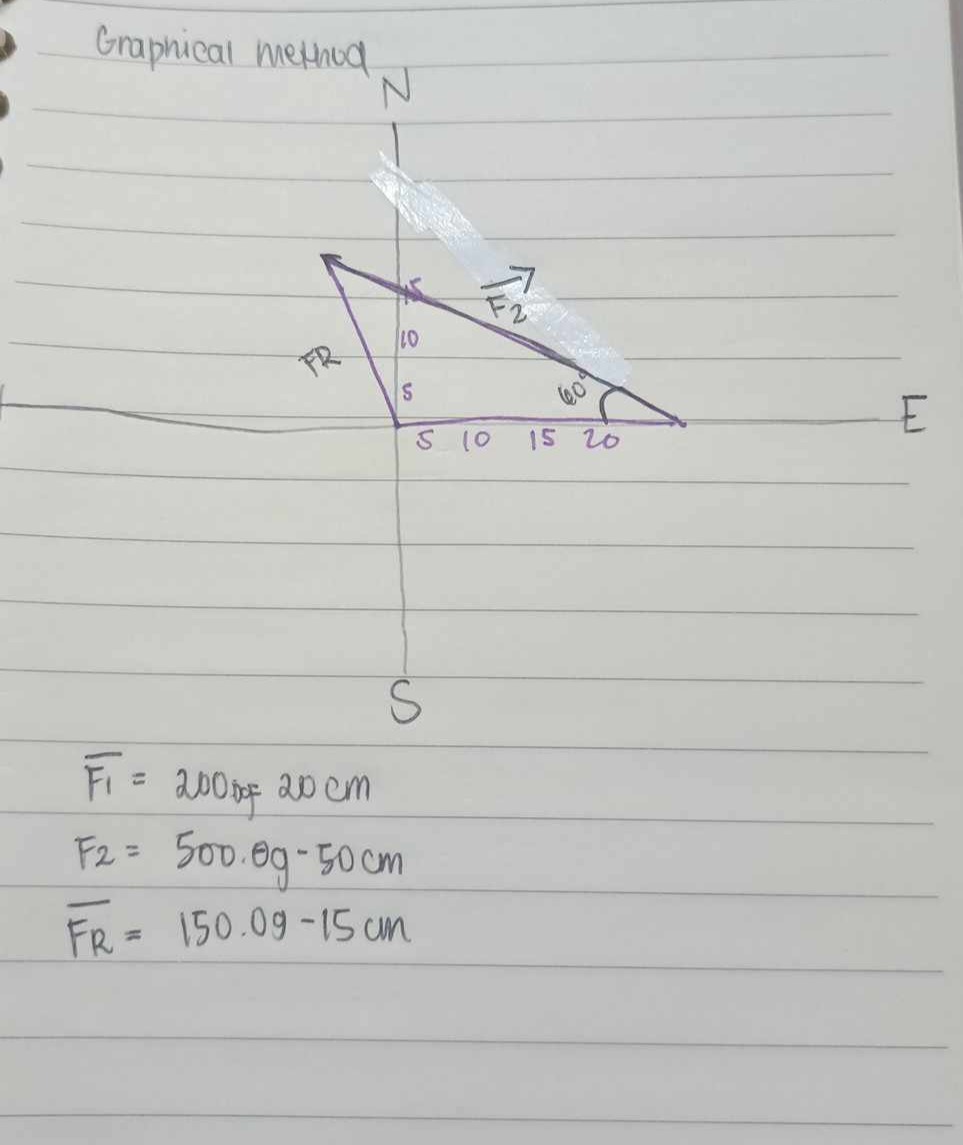 Graphical method
N
15
F2
10
FR
60°
5
E
5 10 15 20
S
F1 = 200.0g 20 cm
F2 = 500.0g - 50 cm
FR = 150.0g - 15 cm